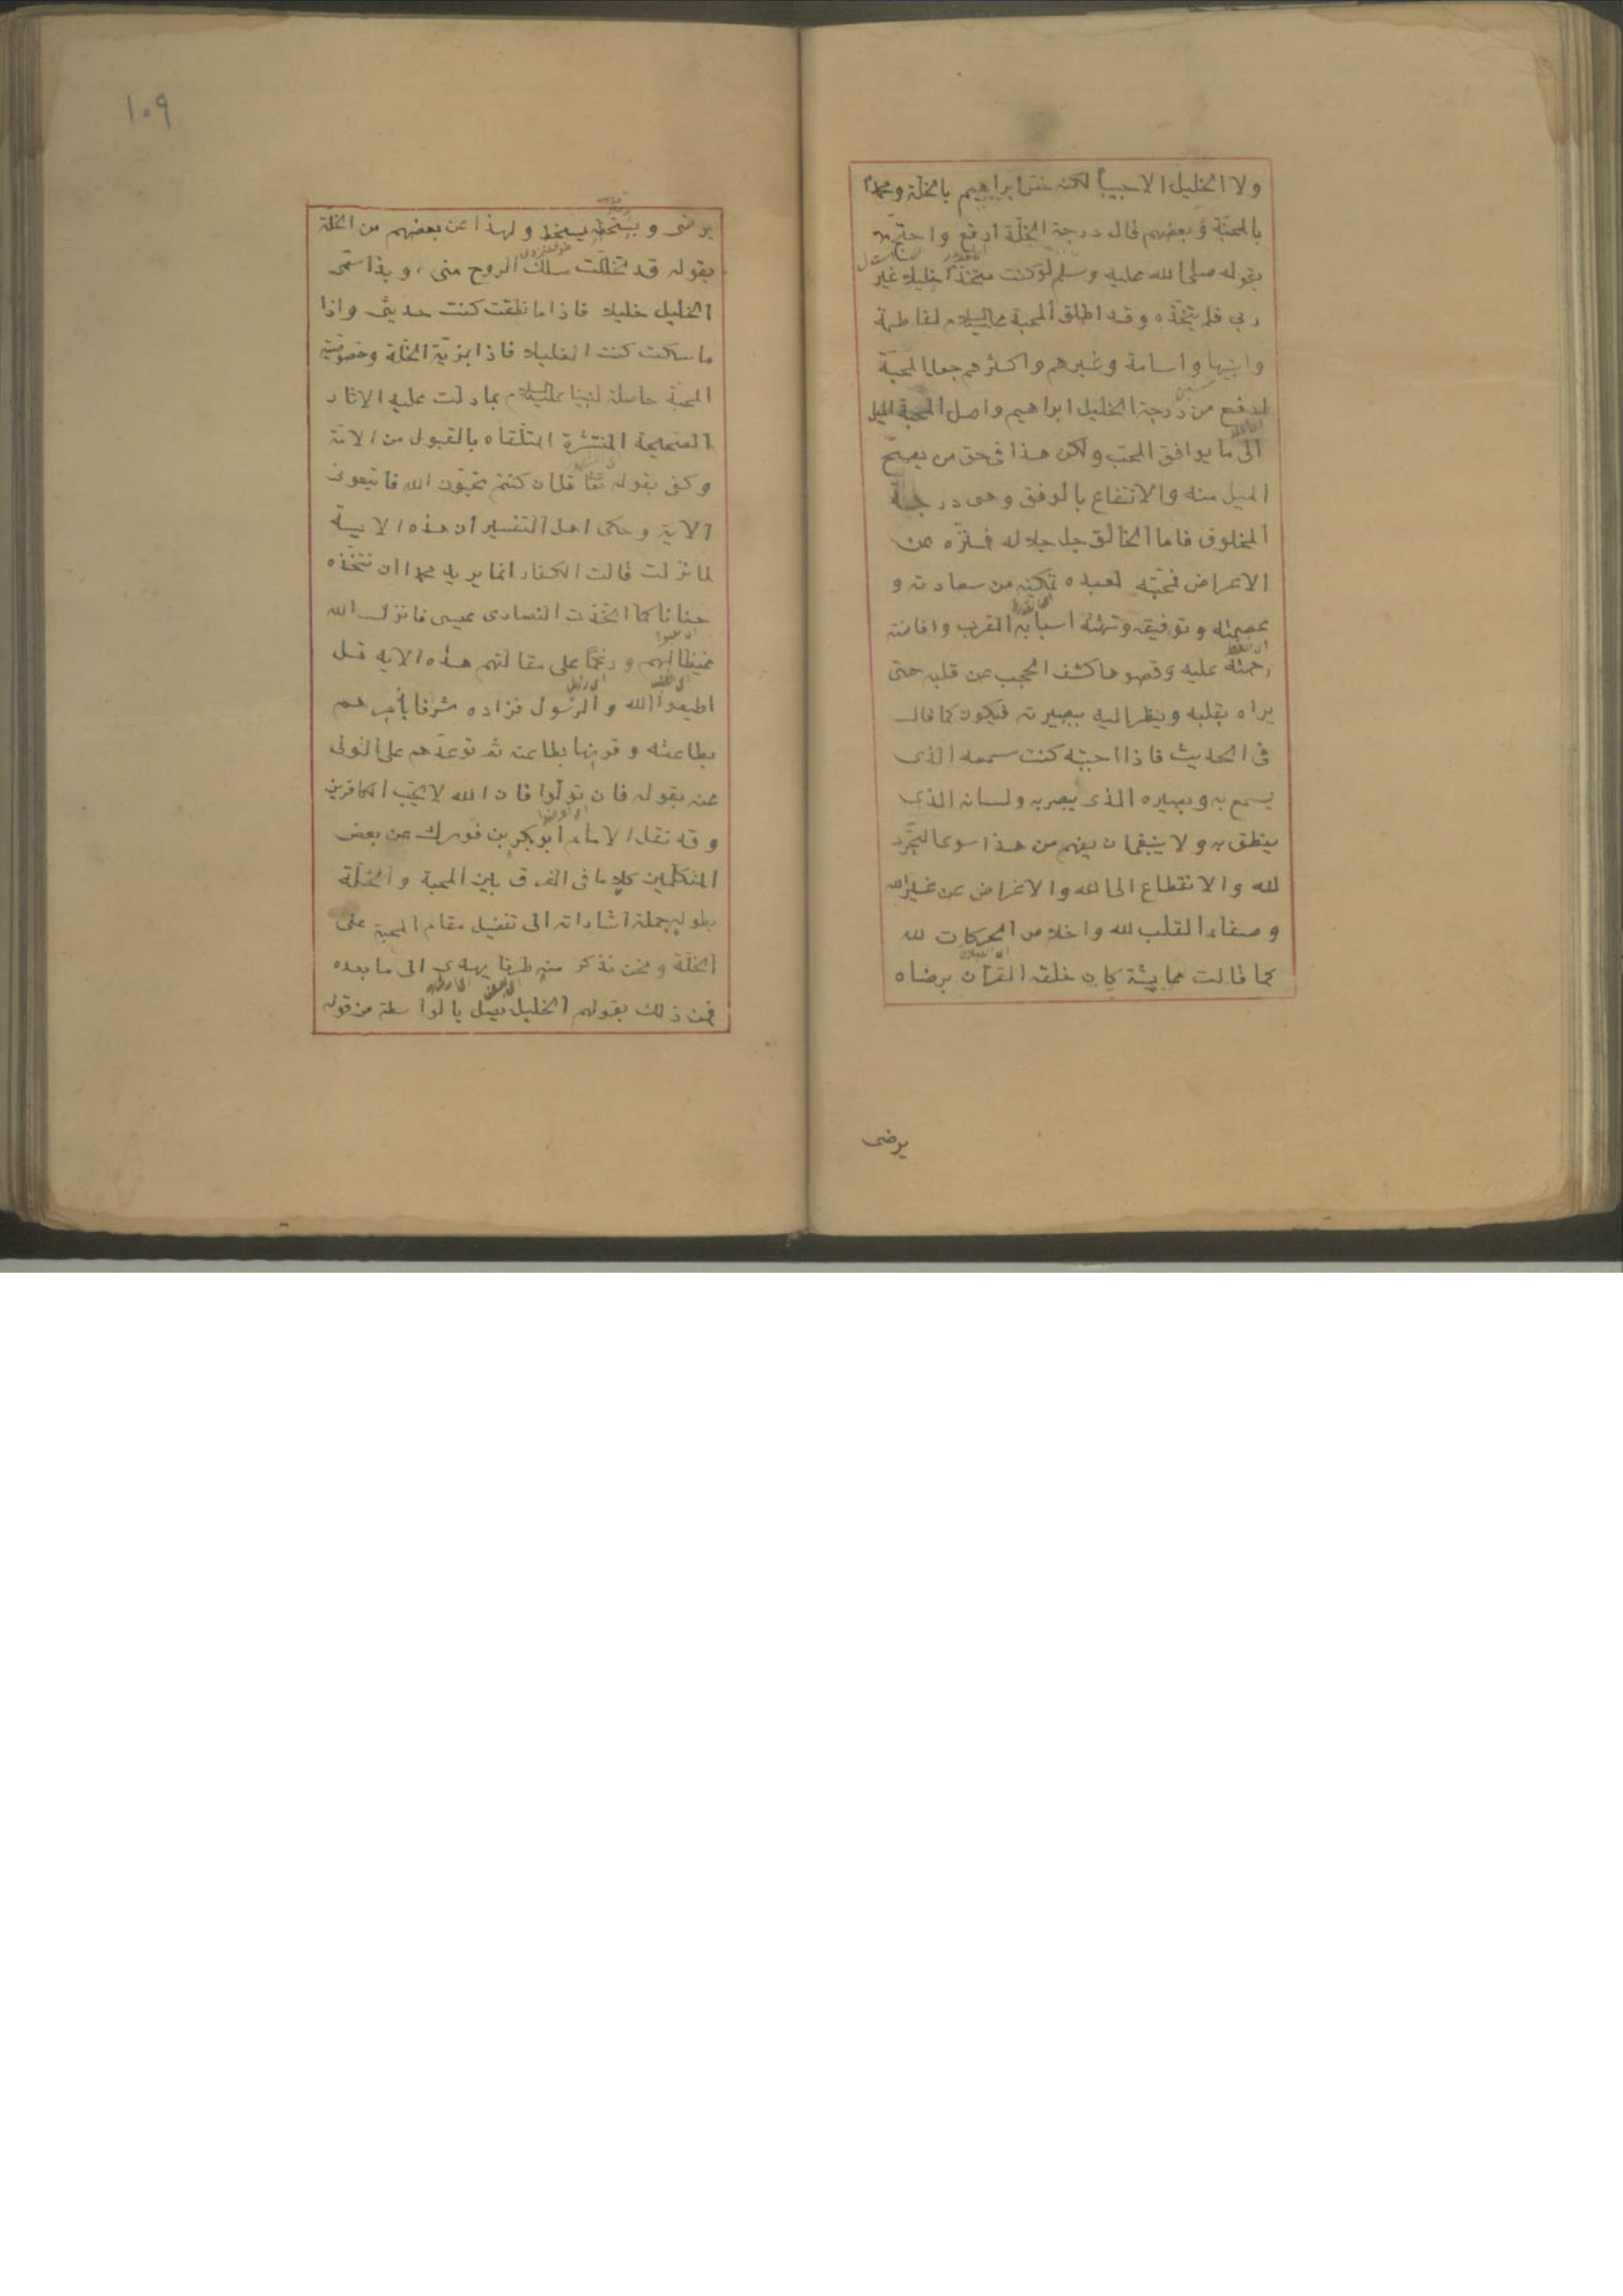 ولا الخليل الا حبيباً لكنه خص ابراهيم بالخلة ومحمداً
بالمحبّة وبعضهم قال درجة الخلّة ارفع واحتجّ
بقوله صلى الله عليه وسلم لو كنت متخذاً خليلا غير
ربى فلم يتخذه وقد اطلق المحبة عليه السلام لفاطمة
وابنيها واسامة وغيرهم واكثرهم جعل المحبّة
ارفع من درجة الخليل ابراهيم واصل المحبة الميل
الى ما يوافق المحب ولكن هذا فى حق من يصحّ
الميل منه والانتفاع بالوفق وهى درجة
المخلوق فاما الخالق جل جلاله فمنزّه عن
الاعراض فمحبّته لعبده تمكينه من سعادته و
عصمته وتوفيقه وتهيئة اسباب القرب وافاضة
رحمته عليه وقصوها كشف الحجب عن قلبه حتى
يراه بقلبه وينظر اليه ببصيرته فيكون كما قال
فى الحديث فاذا احببته كنت سمعه الذى
يسمع به وبصره الذى يبصر به ولسانه الذى
ينطق به ولا ينبغى ان يفهم من هذا سوى التجرّد
لله والانقطاع الى الله والاعراض عن غير الله
وصفاء القلب لله واخلاص الحركات لله
كما قالت عايشة كان خلقه القرآن برضاه
يرضى
١٠٩
يرضى وبسخطه يسخط ولهذا عن بعضهم من الخلة
بقوله قد تخللت مسلك الروح منى، وبذا سمّى
الخليل خليلا فاذا ما نطقت كنت حديثى واذا
ما سكت كنت الغليلا فاذا مزيّة الخلّة وخصوصية
المحبّة حاصلة لنبينا عليه السلام بما دلت عليه الاثار
الصحيحة المنتشرة المتلقاه بالقبول من الامّة
وكفى بقوله تعا قل ان كنتم تحبّون الله فاتبعونى
الاية وحكى اهل التفسير ان هذه الاية
لما نزلت قالت الكفار انما يريد محمدا ان نتخذه
حنانا كما اتخذت النصارى عيسى فانزل الله
غيظا لهم ورغما على مقالتهم هذه الاية قل
اطيعوا الله والرسول فزاده شرفا بأمرهم
بطاعته وقرنها بطاعته ثم توعّدهم على التولى
عنه بقوله فان تولّوا فان الله لا يحب الكافرين
وقد نقل الامام ابو بكر بن فورك عن بعض
المتكلمين كلاما فى الفرق بين المحبة والخلّة
يطول جملة اشاراته الى تفضيل مقام المحبة على
الخلّة ونحن نذكر منه طرفا يهدى الى ما بعده
فمن ذلك بقولهم الخليل يصل بالواسطة من قوله